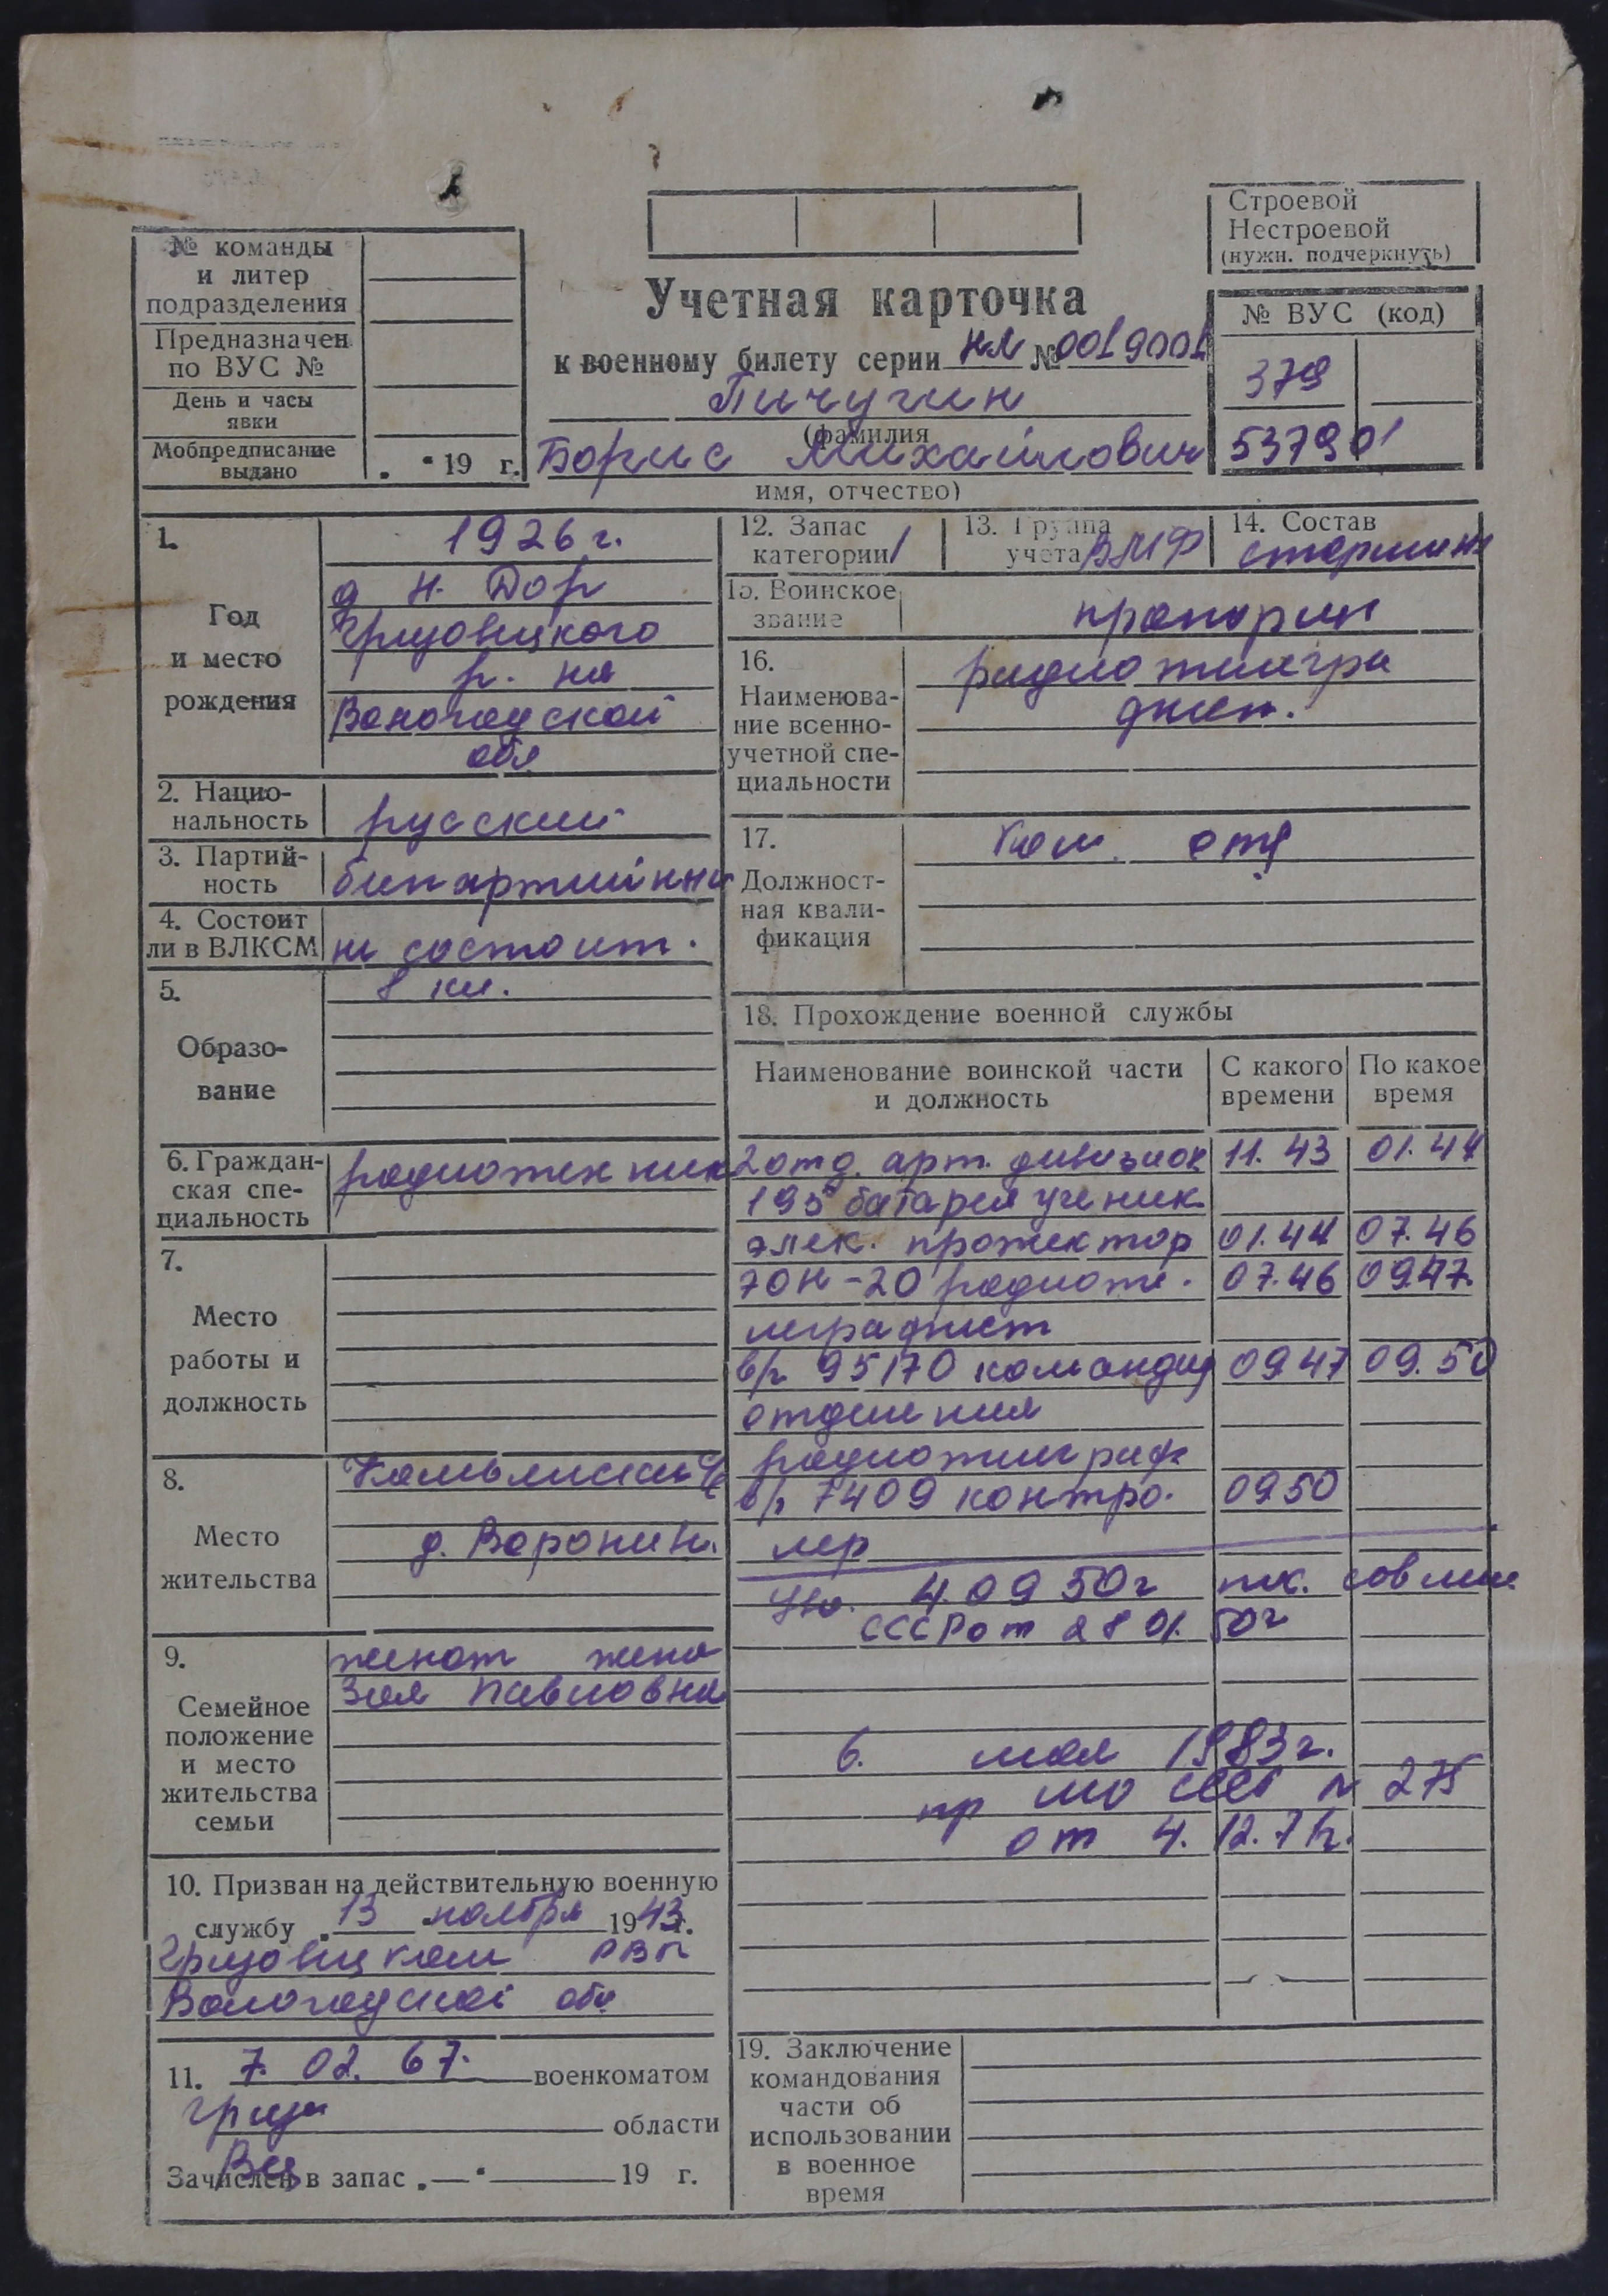 № команды
и литер
подразделения
Предназначен
по ВУС №
День и часы
явки
Мобпредписание
выдано
. " 19 г.
Строевой
Нестроевой
(нужн. подчеркнуть)
Учетная карточка
к военному билету серии НЛ № 0019001
Пичугин
(фамилия
Борис Михайлович
имя, отчество)
№ ВУС (код)
379
537901
1.
Год
и место
рождения
1926 г.
д Н. Дор
Грязовецкого
р. на
Вологодской
обл
2. Нацио-
нальность
русский
3. Партий-
ность
беспартийный
4. Состоит
ли в ВЛКСМ
не состоит.
5.
Образо-
вание
8 кл.
6. Граждан-
ская спе-
циальность
радиотехник
7.
Место
работы и
должность
8.
Место
жительства
д. Воронин.
9.
Семейное
положение
и место
жительства
семьи
женат жена
Зоя Павловна
10. Призван на действительную военную
службу "13 " ноября 1943г.
Грязовецким РВК
Вологодской обл
11. 7. 02. 67. военкоматом
Гряз
области
Зачислен в запас „— "— 19 г.
12. Запас
категории 1
13. Группа
учета ВМФ
14. Состав
старшин
15. Воинское
звание
16.
Наименова-
ние военно-
учетной спе-
циальности
радиотелегра
17.
Должност-
ная квали-
фикация
Ком. отд
18. Прохождение военной службы
Наименование воинской части
и должность
С какого
времени
По какое
время
2 отд. арт. дивизион 11. 43 01. 44
195 батарея ученик
элек. прожектор 01. 44 07. 46
70Н-20 радиоте. 07. 46 09.47.
леграфист
в/ч 95170 командир 09.47 09. 50
отделения
радиотелеграф
в/ч 7409 контро. 09.50
лер
4. 09 50г сов мин
СССР от 28 01. 50г
6. мая 1983г.
пр МО СССР № 275
от 4. 12.
19. Заключение
командования
части об
использовании
в военное
время